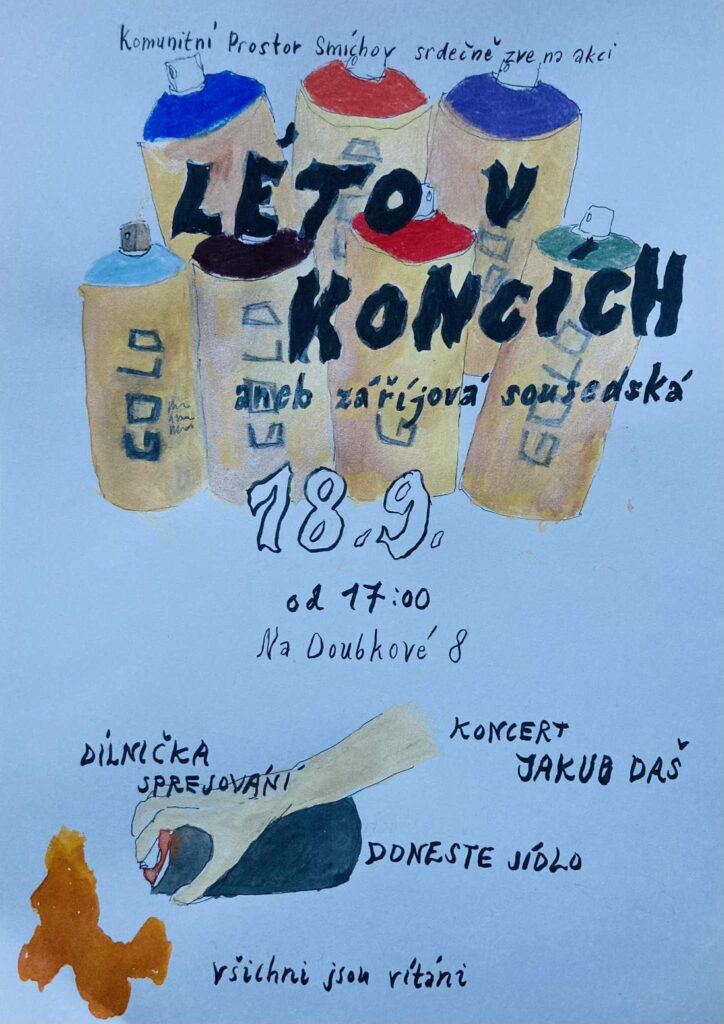 Komunitní Prostor Smíchov srdečně zve na akci
LÉTO V
KONCÍCH
aneb záříjová sousedská
GOLD
GOLD
GOLD
18.9.
od 17:00
Na Doubkové 8
DÍLNIČKA
SPREJOVÁNÍ
KONCERT
JAKUB DAŠ
DONESTE JÍDLO
všichni jsou vítáni